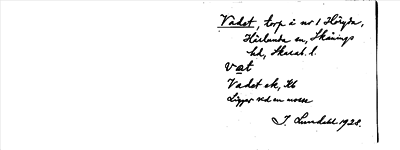 Vadet, torp i nr 1 Höyda,
Härlunda sn, Skånings
hd, Skarab. l.
vat
Vadet ek, Kb
Ligger vid en mosse
J. Lundahl 1928.